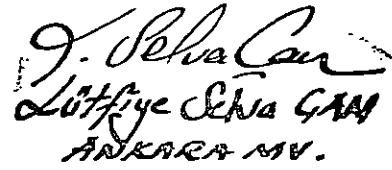 L. Selva Çam
Lütfiye Selva ÇAM
ANKARA MV.